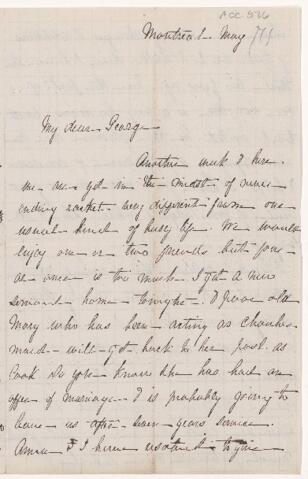 ACC. 526
Montreal May
My dear George
Another week & here
we are yet in the midst of never
ending racket very different from our
usual kind of busy life. We would
enjoy one or two friends but four
at once is too much. I get a new
servant home tonight. & poor old
Mary who has been acting as chamber
maid will get back to her post as
cook. So you know she has had an
offer of marriage & is probably going to
leave us after seven years service.
&